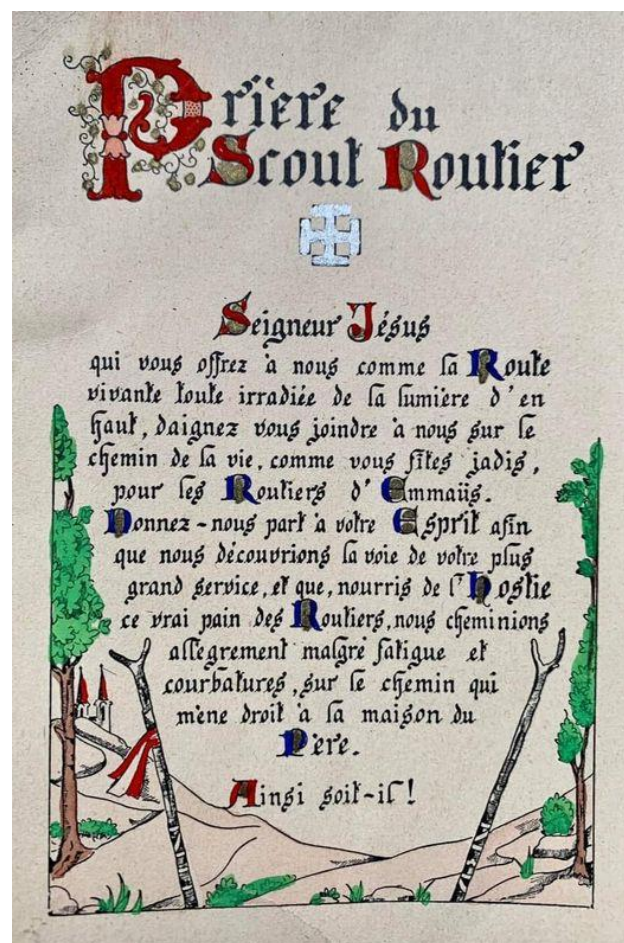 Prière du
Scout Routier
Seigneur Jésus
qui vous offrez à nous comme la Route
vivante toute irradiée de la lumière d'en
haut, daignez vous joindre à nous sur le
chemin de la vie, comme vous fîtes jadis,
pour les Routiers d'Emmaüs.
Donnez-nous part à votre Esprit afin
que nous découvrions la voie de votre plus
grand service, et que, nourris de l'Hostie
ce vrai pain des Routiers, nous cheminions
allègrement malgré fatigue et
courbatures, sur le chemin qui
mène droit à la maison du
Père.
Ainsi soit-il !